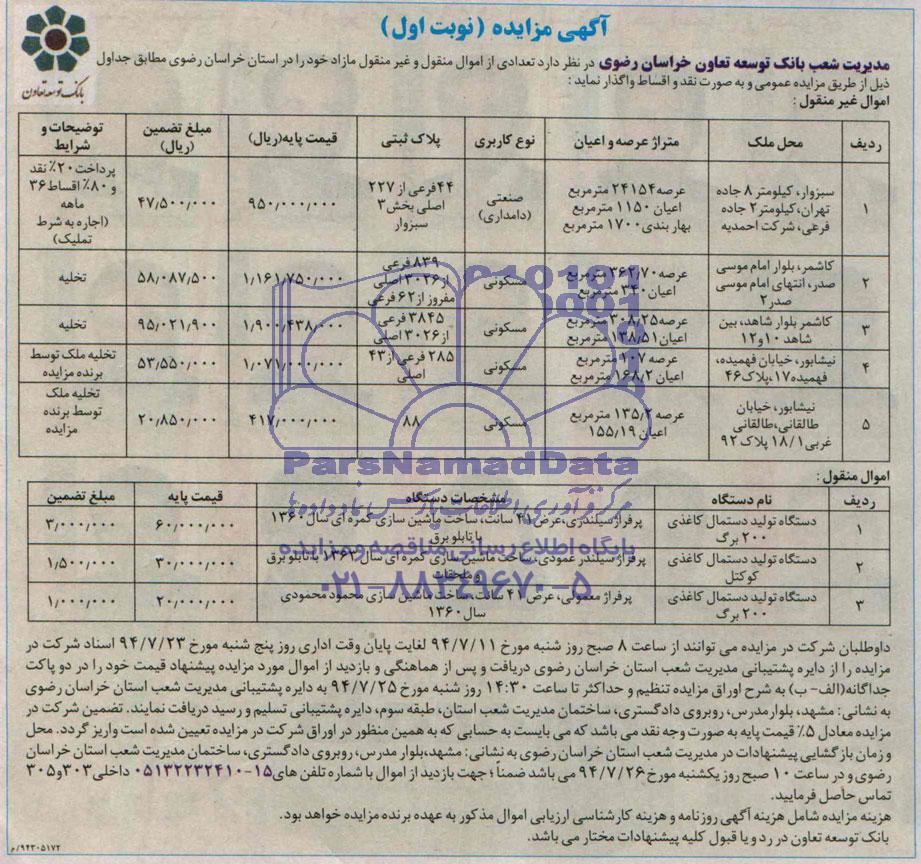 آگهی مزایده (نوبت اول)
بانک توسعه تعاون
مدیریت شعب بانک توسعه تعاون خراسان رضوی در نظر دارد تعدادی از اموال منقول و غیر منقول مازاد خود را در استان خراسان رضوی مطابق جداول
ذیل از طریق مزایده عمومی و به صورت نقد و اقساط واگذار نماید :
اموال غیر منقول :
ردیف محل ملک متراژ عرصه و اعیان نوع کاربری پلاک ثبتی قیمت پایه(ریال) مبلغ تضمین (ریال) توضیحات و شرایط
۱ سبزوار، کیلومتر ۸ جاده تهران،کیلومتر۲ جاده فرعی، شرکت احمدیه عرصه۲۴۱۵۴ مترمربع اعیان ۱۱۵۰ مترمربع بهار بندی۱۷۰۰ مترمربع صنعتی (دامداری) ۴۴فرعی از ۲۲۷ اصلی بخش۳ سبزوار ۹۵۰/۰۰۰/۰۰۰ ۴۷/۵۰۰/۰۰۰ پرداخت۲۰٪ نقد و ۸۰٪ اقساط ۳۶ ماهه (اجاره به شرط تملیک)
۲ کاشمر، بلوار امام موسی صدر، انتهای امام موسی صدر۲ عرصه۳۶۲/۷۰ مترمربع اعیان۳۴۰ مترمربع مسکونی ۸۳۹ فرعی از۳۰۲۶ اصلی مفروز از۶۲ فرعی ۱/۱۶۱/۷۵۰/۰۰۰ ۵۸/۰۸۷/۵۰۰ تخلیه
۳ کاشمر بلوار شاهد، بین شاهد ۱۰و۱۲ عرصه۳۰۸/۲۵ مترمربع اعیان۱۳۸/۵۱ مترمربع مسکونی ۳۸۴۵ فرعی از۳۰۲۶ اصلی ۱/۹۰۰/۴۳۸/۰۰۰ ۹۵/۰۲۱/۹۰۰ تخلیه
۴ نیشابور، خیابان فهمیده، فهمیده۱۷،پلاک۴۶ عرصه ۱۰۷ مترمربع اعیان ۱۶۸/۲ مترمربع مسکونی ۲۸۵ فرعی از۴۳ اصلی ۱/۰۷۱/۰۰۰/۰۰۰ ۵۳/۵۵۰/۰۰۰ تخلیه ملک توسط برنده مزایده
۵ نیشابور، خیابان طالقانی،طالقانی غربی۱۸/۱ پلاک ۹۲ عرصه ۱۳۵/۲ مترمربع اعیان ۱۵۵/۱۹ مسکونی ۸۸ ۴۱۷/۰۰۰/۰۰۰ ۲۰/۸۵۰/۰۰۰ تخلیه ملک توسط برنده مزایده
ParsNamadData
اموال منقول :
ردیف نام دستگاه مشخصات دستگاه قیمت پایه مبلغ تضمین
۱ دستگاه تولید دستمال کاغذی ۲۰۰ برگ پرفراژ سیلندری،عرض ۴۱ سانت، ساخت ماشین سازی کمره ای سال ۱۳۶۰ با تابلو برق ۶۰/۰۰۰/۰۰۰ ۳/۰۰۰/۰۰۰
پایگاه اطلاع رسانی مناقصه و مزایده
۲ دستگاه تولید دستمال کاغذی کوکتل پرفراژ سیلندر عمودی، ساخت ماشین سازی کمره ای سال ۱۳۶۲ با تابلو برق و ملحقات ۳۰/۰۰۰/۰۰۰ ۱/۵۰۰/۰۰۰
۰۲۱-۸۸۳۴۹۶۷۰-۵
۳ دستگاه تولید دستمال کاغذی ۲۰۰ برگ پرفراژ معمولی، عرض ۴۱ سانت، ساخت ماشین سازی محمود محمودی سال ۱۳۶۰ ۲۰/۰۰۰/۰۰۰ ۱/۰۰۰/۰۰۰
داوطلبان شرکت در مزایده می توانند از ساعت ۸ صبح روز شنبه مورخ ۹۴/۷/۱۱ لغایت پایان وقت اداری روز پنج شنبه مورخ ۹۴/۷/۲۳ اسناد شرکت در
مزایده را از دایره پشتیبانی مدیریت شعب استان خراسان رضوی دریافت و پس از هماهنگی و بازدید از اموال مورد مزایده پیشنهاد قیمت خود را در دو پاکت
جداگانه(الف- ب) به شرح اوراق مزایده تنظیم و حداکثر تا ساعت ۱۴:۳۰ روز شنبه مورخ ۹۴/۷/۲۵ به دایره پشتیبانی مدیریت شعب استان خراسان رضوی
به نشانی: مشهد، بلوار مدرس، روبروی دادگستری، ساختمان مدیریت شعب استان، طبقه سوم، دایره پشتیبانی تسلیم و رسید دریافت نمایند. تضمین شرکت در
مزایده معادل ۵٪ قیمت پایه به صورت وجه نقد می باشد که می بایست به حسابی که به همین منظور در اوراق شرکت در مزایده تعیین شده است واریز گردد. محل
و زمان بازگشایی پیشنهادات در مدیریت شعب استان خراسان رضوی به نشانی: مشهد،بلوار مدرس، روبروی دادگستری، ساختمان مدیریت شعب استان خراسان
رضوی و در ساعت ۱۰ صبح روز یکشنبه مورخ ۹۴/۷/۲۶ می باشد ضمناً ؛ جهت بازدید از اموال با شماره تلفن های ۱۵-۰۵۱۳۲۲۳۲۴۱۰ داخلی ۳۰۳ و ۳۰۵
تماس حاصل فرمایید.
هزینه مزایده شامل هزینه آگهی روزنامه و هزینه کارشناسی ارزیابی اموال مذکور به عهده برنده مزایده خواهد بود.
بانک توسعه تعاون در رد و یا قبول کلیه پیشنهادات مختار می باشد.
۹۴۳۰۵۱۷۲/م